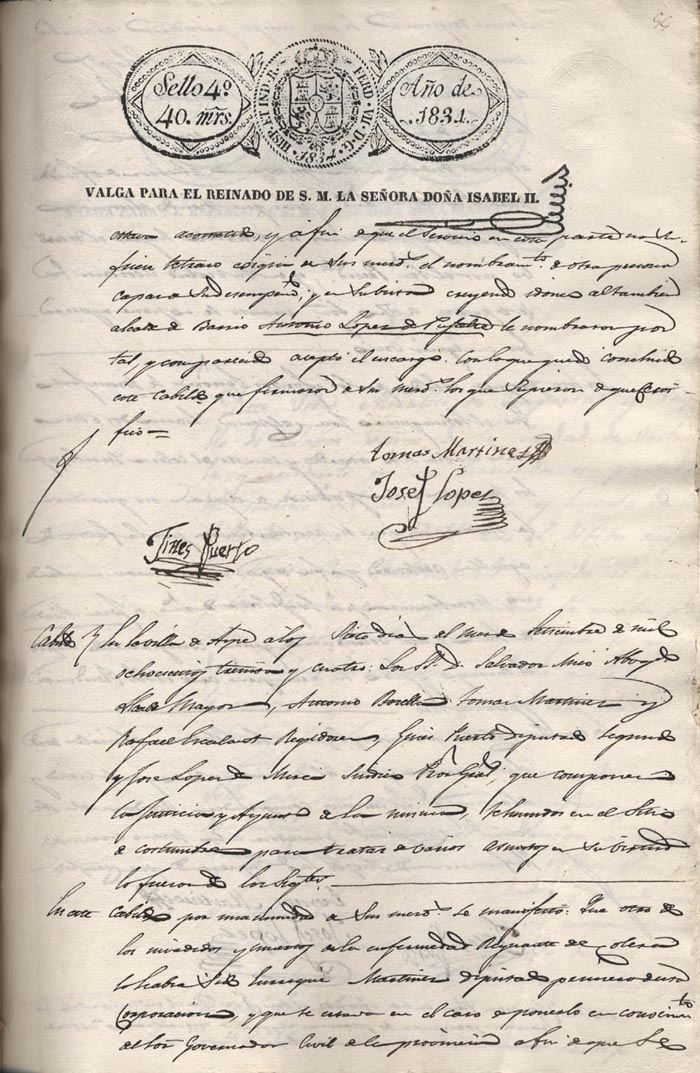 56
Sello 4º
40. mrs.
HISP. ET IND. R. FERD. VII. D. G.
1834
Año de
1834.
VALGA PARA EL REINADO DE S. M. LA SEÑORA DOÑA ISABEL II.
y a fin de que el Servicio en esta parte no su
el nombramto. de otra persona
capaz a su desempeño; y en su virtud creyendo idoneo al tambien
alcalde de Barrio Antonio Lopez de le nombraron por
tal, y comparecido acepto el encargo. Con lo que quedo concluido
este Cabildo que firmaron Sus merds. los que supieron de que
fee=
tomas Martines
Josef Lopez
Jines Puerto
Cabildo En la villa de Aspe a los Siete dias del mes de Setiembre de mil
ochocientos treinta y cuatro: Los SSs. D. Salvador Miró Abogdo.
Alcalde Mayor, Antonio Botella, Tomas Martinez y
Rafael Escalant Regidores, Gines Puerto diputado segundo
y Jose Lopez de Murcia Sindico Prор Gral, que componen
la Justicia y Ayunto. de la misma, reunidos en el Sitio
de costumbre para tratar de varios asuntos en su virtud
lo fueron de los Sigtes.
En este Cabildo por unanimidad Sus merds. se manifesto: Que otro de
los invadidos y muertos de la enfermedad Reynante de colera
lo habia Sido Enrrique Martinez diputado primero de esta
Corporacion, y que se estaba en el caso de ponerlo en conocimto.
del Sor. Governador Civil de la provincia a fin de que Se